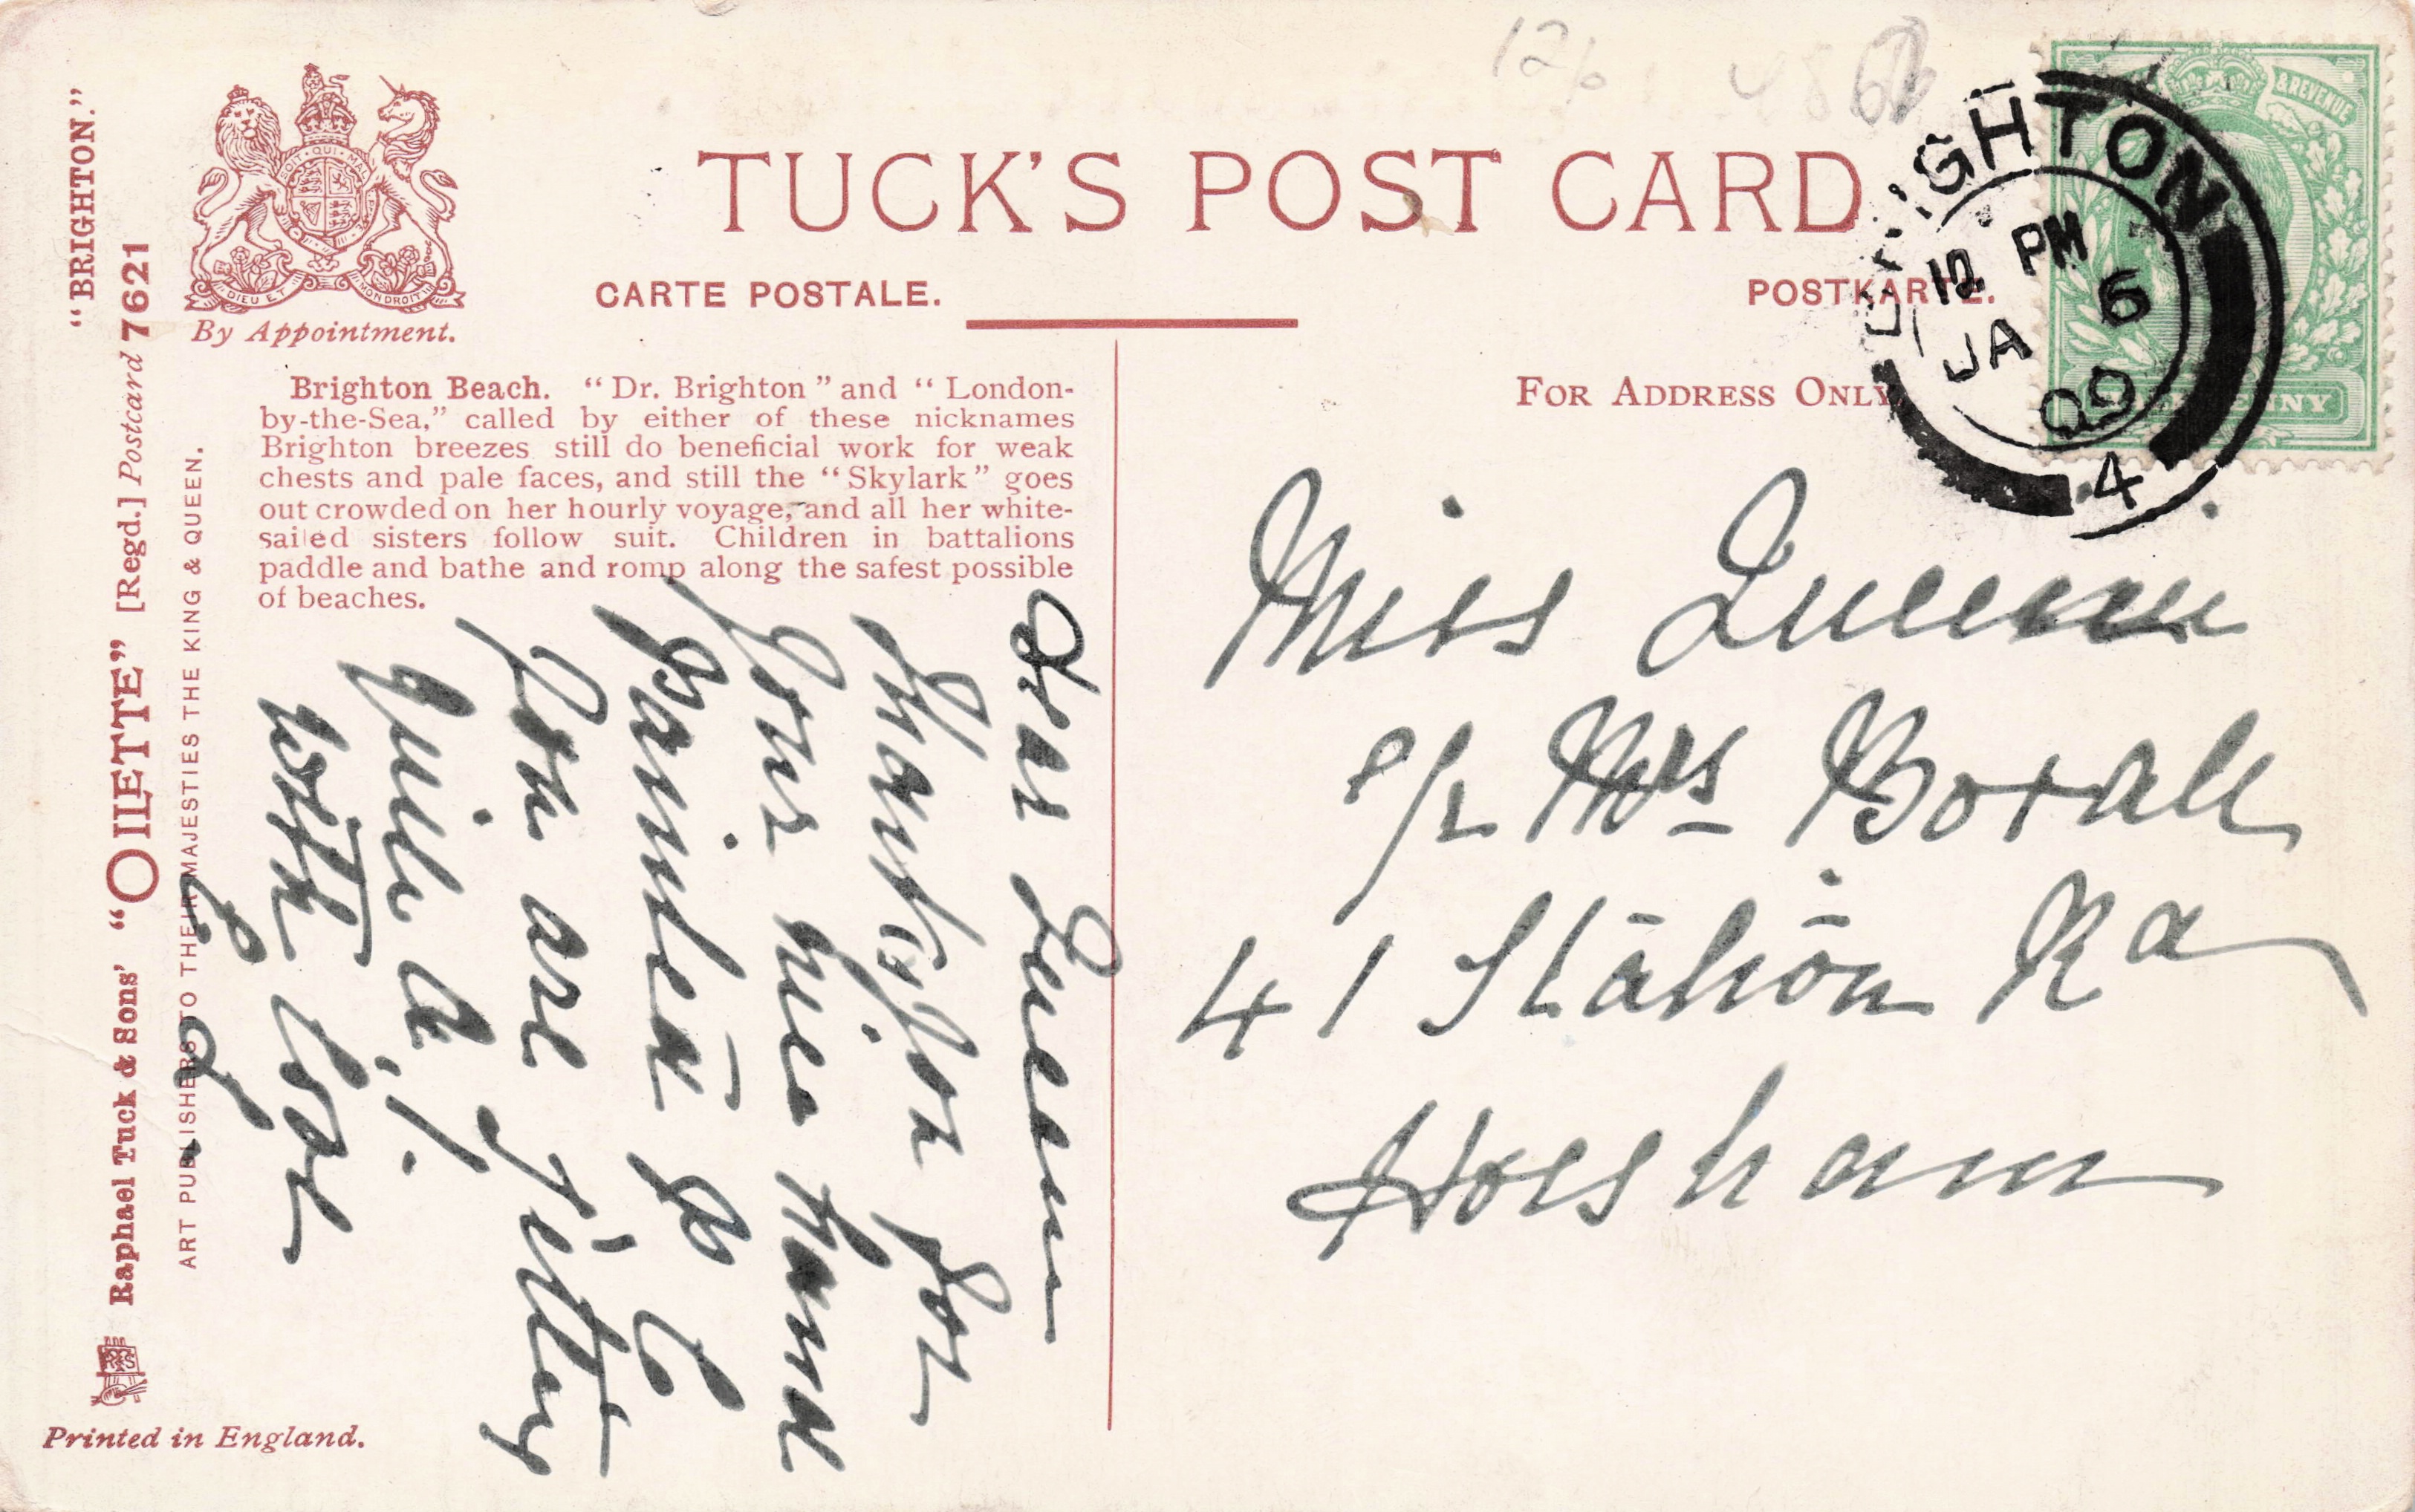 "BRIGHTON."
Raphael Tuck & Sons' "OILETTE" [Regd.] Postcard 7621
ART PUBLISHERS TO THEIR MAJESTIES THE KING & QUEEN.
SOIT QUI MAL
DIEU ET MON DROIT
By Appointment.
TUCK'S POST CARD
CARTE POSTALE.
POSTKARTE.
Brighton Beach. "Dr. Brighton" and "London-
by-the-Sea," called by either of these nicknames
Brighton breezes still do beneficial work for weak
chests and pale faces, and still the "Skylark" goes
out crowded on her hourly voyage, and all her white-
sailed sisters follow suit. Children in battalions
paddle and bathe and romp along the safest possible
of beaches.
FOR ADDRESS ONLY
& REVENUE
BRIGHTON
12 PM
JA 6
09
4
126
Miss
c/o Mrs Boxall
41 Station Rd
Horsham
Dear
Thanks for
your nice hand
painted p c
You are getting
quite a. 1.
with love
Printed in England.